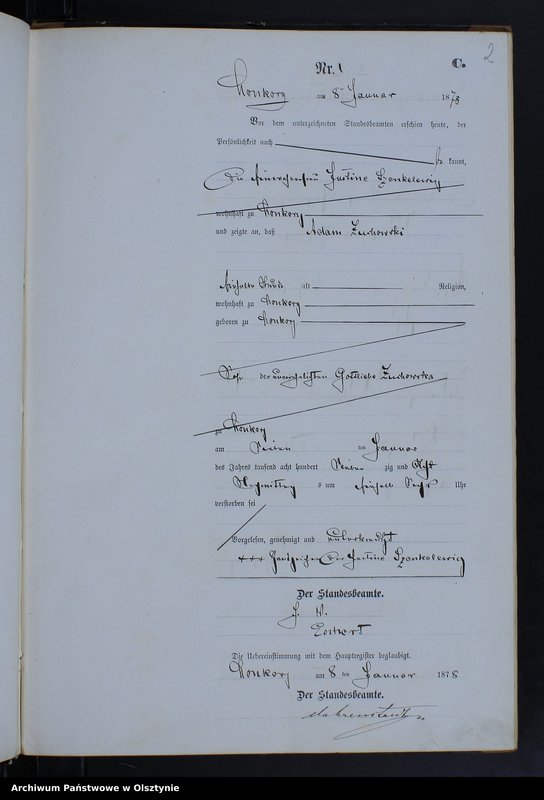 2
Nr. 1 C.
Monkorz am 8ten Januar 1878
Vor dem unterzeichneten Standesbeamten erschien heute, der
Persönlichkeit nach
be kannt,
die Justine Szenkelewitz
wohnhaft zu Monkorz
und zeigte an, daß Adam Zuchowski
alt Religion,
wohnhaft zu Monkorz
geboren zu Monkorz
Sohn der unverehelichten Gottliebe Zuchowska
zu Monkorz
am ten Januar
des Jahres tausend acht hundert Sieben zig und Acht
Nachmittag s um Uhr
verstorben sei
Vorgelesen, genehmigt und unterkreuzt
+++ Handzeichen der Justine Szenkelewitz
Der Standesbeamte.
Die Uebereinstimmung mit dem Hauptregister beglaubigt.
Monkorz am 8 ten Januar 1878
Der Standesbeamte.
Archiwum Państwowe w Olsztynie